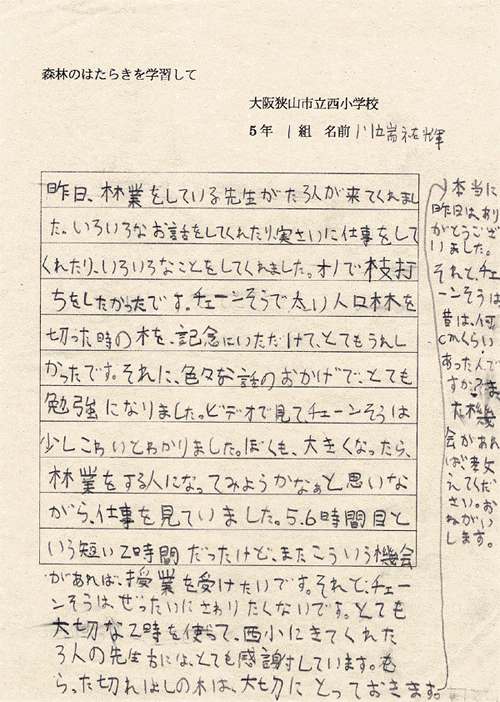 森林のはたらきを学習して
大阪狭山市立西小学校
5年 1組 名前 川端祐輝
昨日、林業をしている先生がた3人が来てくれまし
た。いろいろなお話をしてくれたり、実さいに仕事をして
くれたり、いろいろなことをしてくれました。オノで枝打
ちをしたかったです。チェーンそうで太い人口林木を
切った時の木を、記念にいただけて、とてもうれし
かったです。それに、色々な話のおかげで、とても
勉強になりました。ビデオで見て、チェーンそうは
少しこわいとわかりました。ぼくも、大きくなったら、
林業をする人になってみようかなぁと思いな
がら、仕事を見ていました。5.6時間目と
いう短い2時間だったけど、またこういう機会
があれば、授業を受けたいです。それと、チェー
ンそうは、ぜったいにさわりたくないです。とても
大切な2時を使って、西小にきてくれた
3人の先生方には、とても感謝しています。も
らった切れはしの木は、大切にとっておきます。
本当に
昨日は、あり
がとうござ
いました。
それと、チェ
ーンそうは
昔は、何
cmくらい
あったんで
すか?ま
た機
会があれ
ば、教
えてくだ
さい。お
ねがい
します。